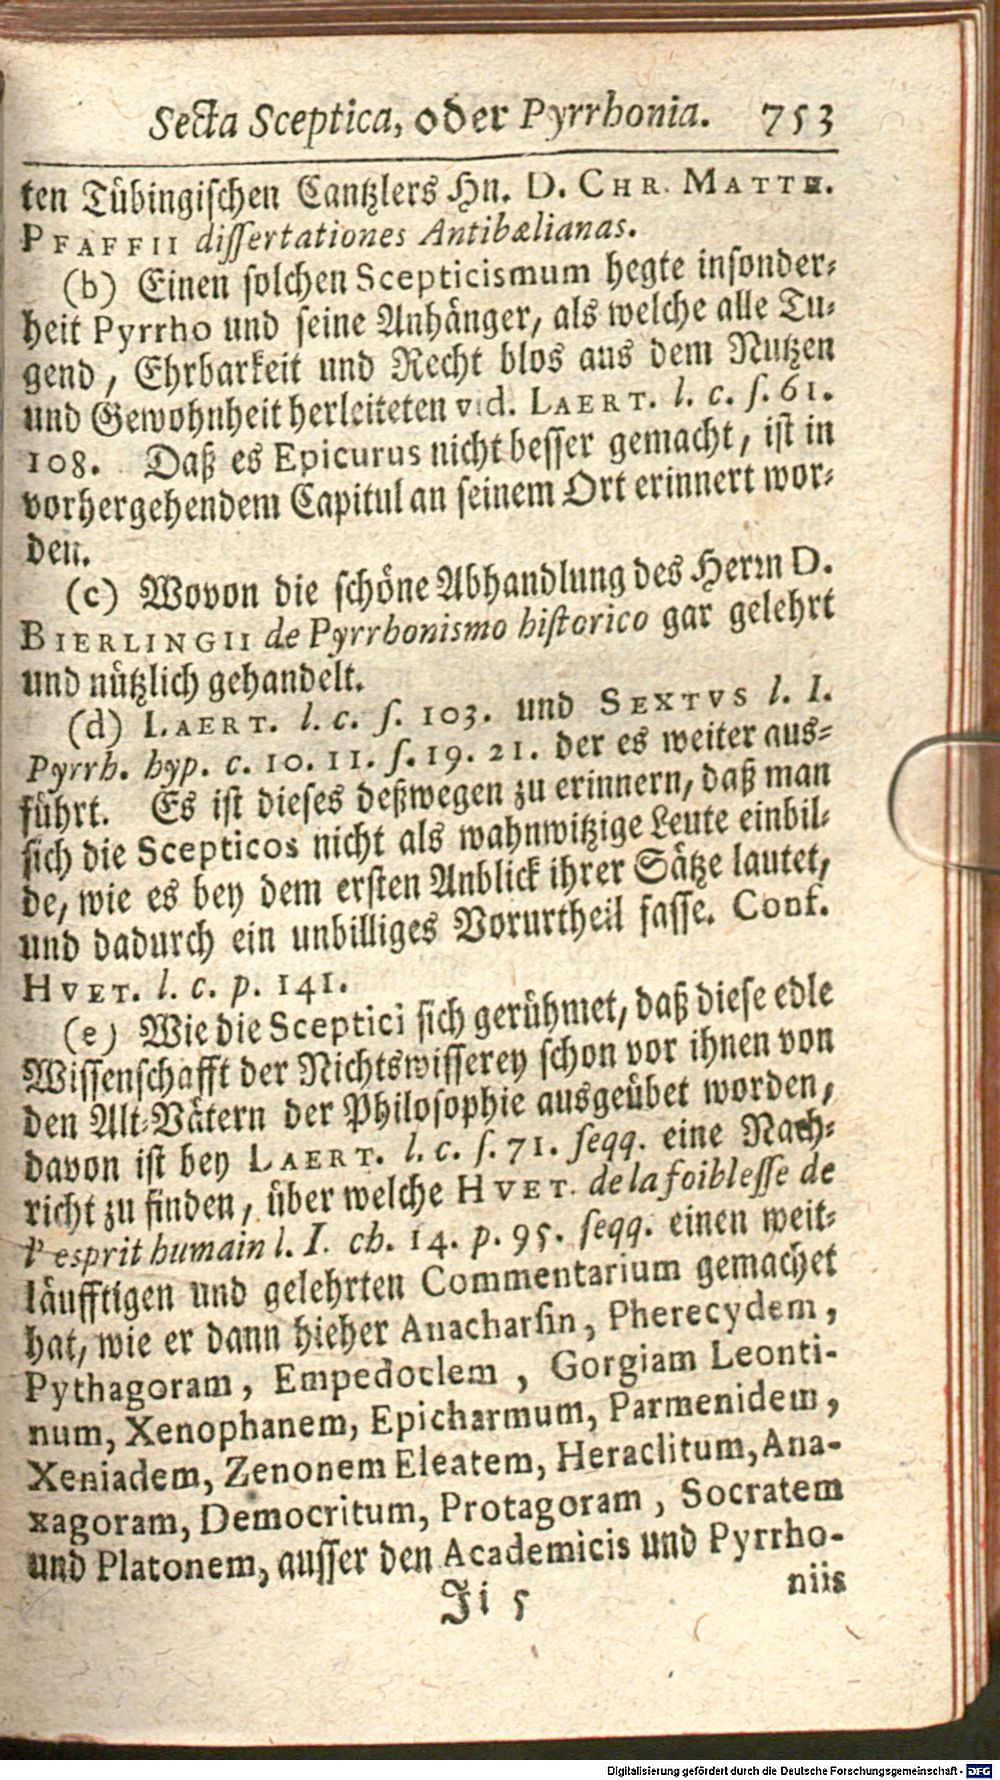 Secta Sceptica, oder Pyrrhonia. 753
ten Tübingischen Cantzlers Hn. D. CHR. MATTH.
PFAFFII dissertationes Antibælianas.
(b) Einen solchen Scepticismum hegte insonder-
heit Pyrrho und seine Anhänger, als welche alle Tu-
gend, Ehrbarkeit und Recht blos aus dem Nutzen
und Gewohnheit herleiteten vid. LAERT. l. c. s. 61.
108. Daß es Epicurus nicht besser gemacht, ist in
vorhergehendem Capitul an seinem Ort erinnert wor-
den.
(c) Wovon die schöne Abhandlung des Herrn D.
BIERLINGII de Pyrrhonismo historico gar gelehrt
und nützlich gehandelt.
(d) LAERT. l. c. s. 103. und SEXTVS l. I.
Pyrrh. hyp. c. 10. 11. s. 19. 21. der es weiter aus-
führt. Es ist dieses deßwegen zu erinnern, daß man
sich die Scepticos nicht als wahnwitzige Leute einbil-
de, wie es bey dem ersten Anblick ihrer Sätze lautet,
und dadurch ein unbilliges Vorurtheil fasse. Conf.
HVET. l. c. p. 141.
(e) Wie die Sceptici sich gerühmet, daß diese edle
Wissenschafft der Nichtswisserey schon vor ihnen von
den Alt-Vätern der Philosophie ausgeübet worden,
davon ist bey LAERT. l. c. s. 71. seqq. eine Nach-
richt zu finden, über welche HVET. de la foiblesse de
l' esprit humain l. I. ch. 14. p. 95. seqq. einen weit-
läufftigen und gelehrten Commentarium gemachet
hat, wie er dann hieher Anacharsin, Pherecydem,
Pythagoram, Empedoclem, Gorgiam Leonti-
num, Xenophanem, Epicharmum, Parmenidem,
Xeniadem, Zenonem Eleatem, Heraclitum, Ana-
xagoram, Democritum, Protagoram, Socratem
und Platonem, ausser den Academicis und Pyrrho-
Jii 5 niis
Digitalisierung gefördert durch die Deutsche Forschungsgemeinschaft - DFG